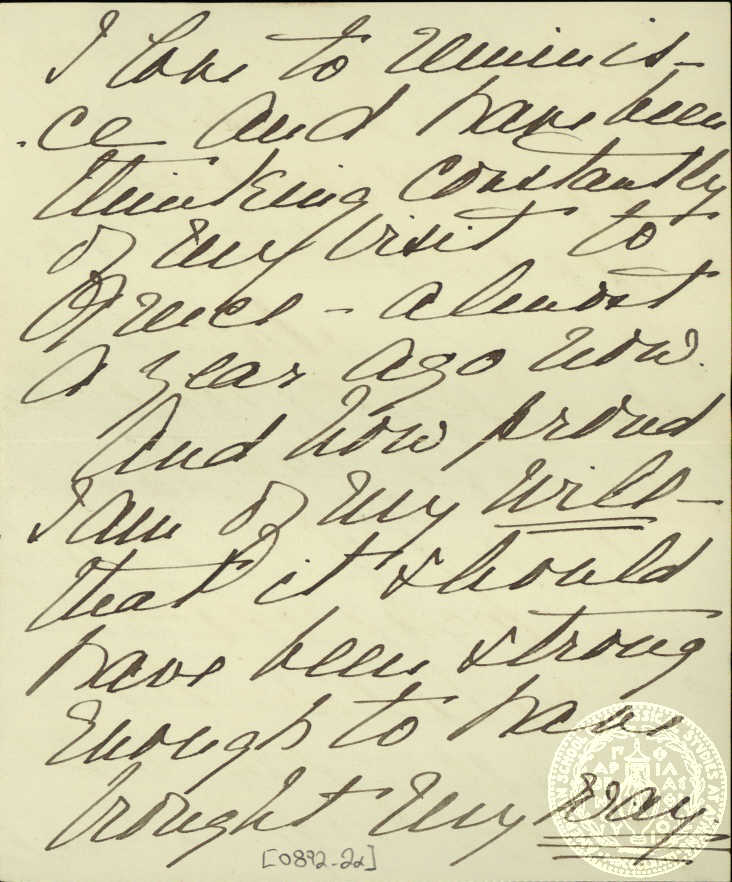 I love to reminis-
ce and have been
thinking constantly
of my visit to
Greece - almost
a year ago now.
And how proud
I am of my will -
that it should
have been strong
enough to have
brought my
[0892-2a]
SCHOOL OF CLASSICAL STUDIES AT